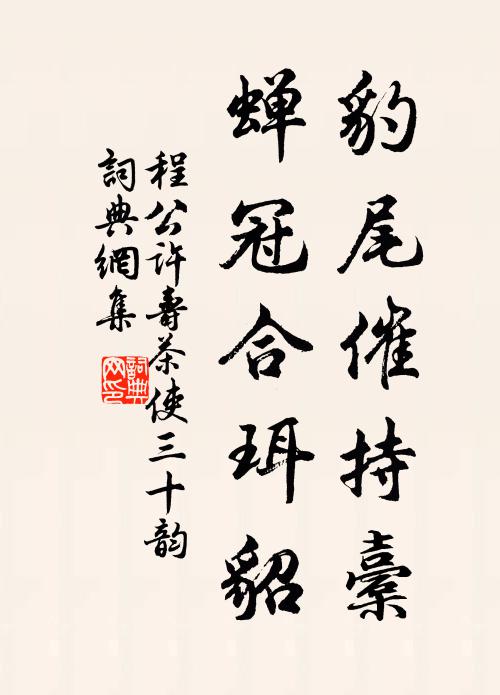 豹尾催持橐
蝉冠合珥貂
程公許壽茶使三十韵
詞典網集
詞典网印